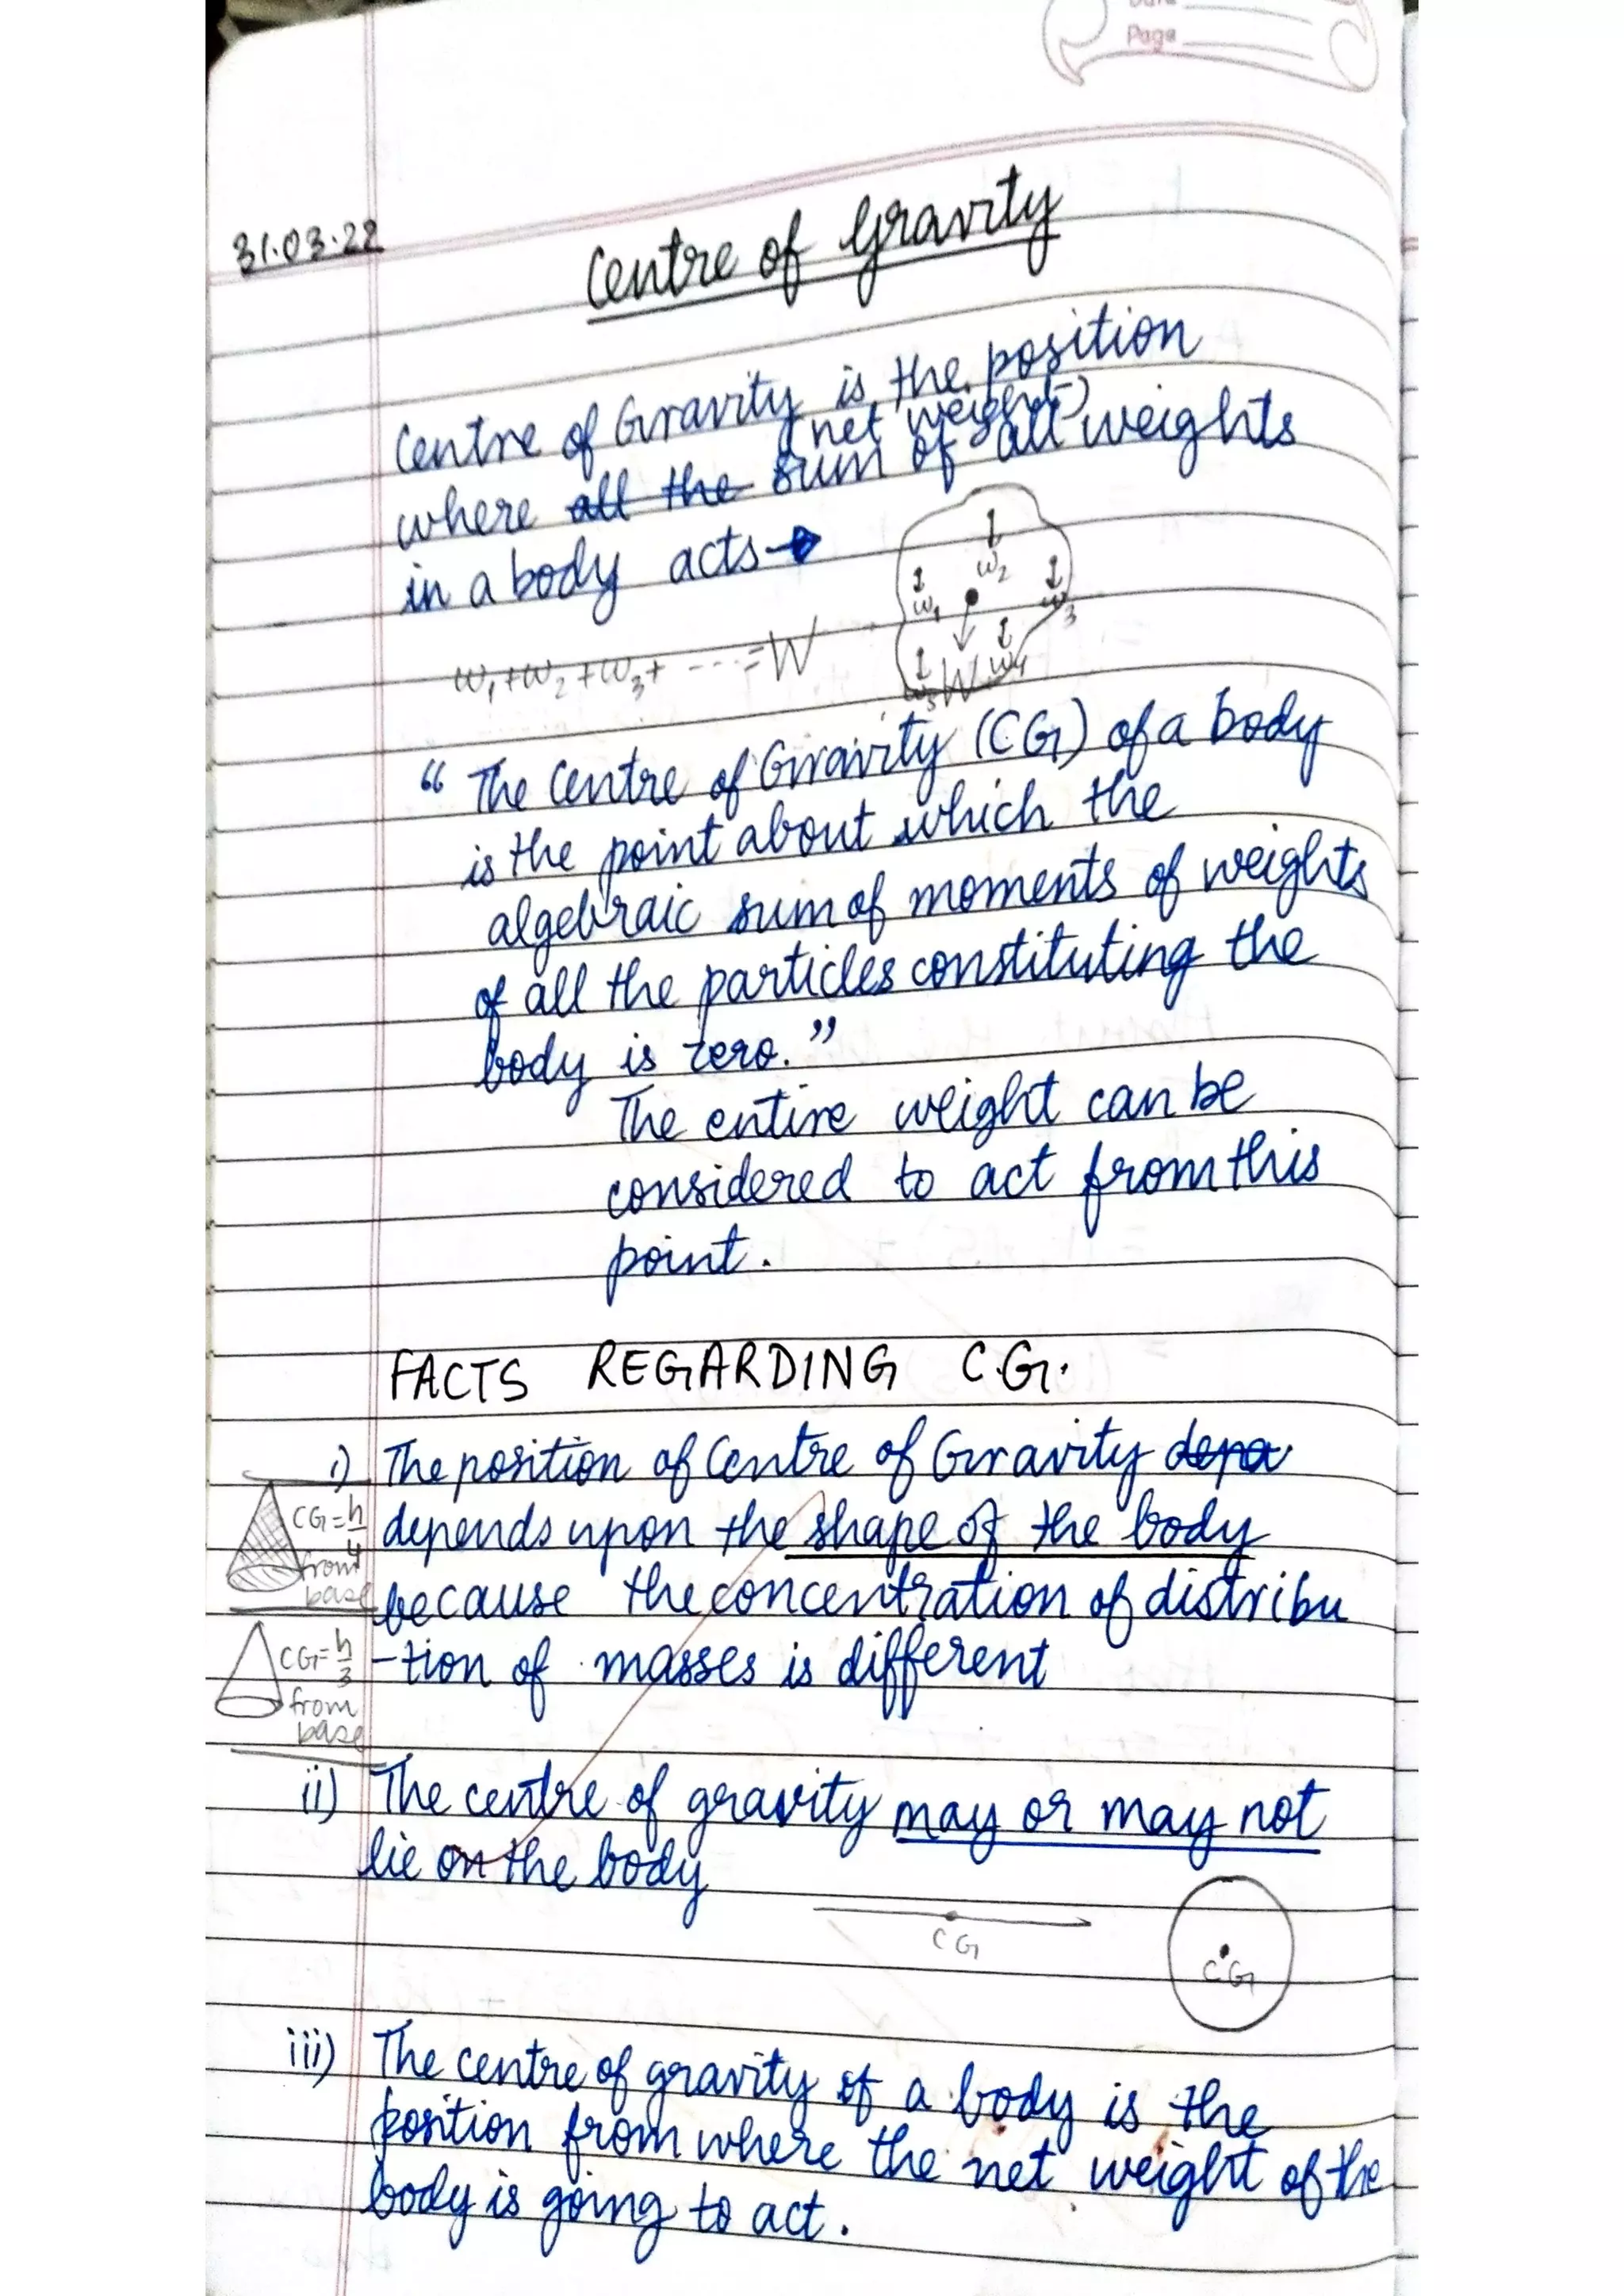 Page
31.03.22
Centre of Gravity
Centre of Gravity is the position
(net weight)
where all the sum of all weights
in a body acts→
w1+w2+w3+ ----=W
w2
w1
w3
w4
w5
W
“ The Centre of Gravity (CG) of a body
is the point about which the
algebraic sum of moments of weights
of all the particles constituting the
body is zero.”
The entire weight can be
considered to act from this
point.
FACTS REGARDING C.G.
i) The position of Centre of Gravity depa
depends upon the shape of the body
because the concentration of distribu
-tion of masses is different
CG=h/4
from
base
CG=h/3
from
base
ii) The centre of gravity may or may not
lie on the body
CG
CG
iii) The centre of gravity of a body is the
position from where the net weight of the
body is going to act.